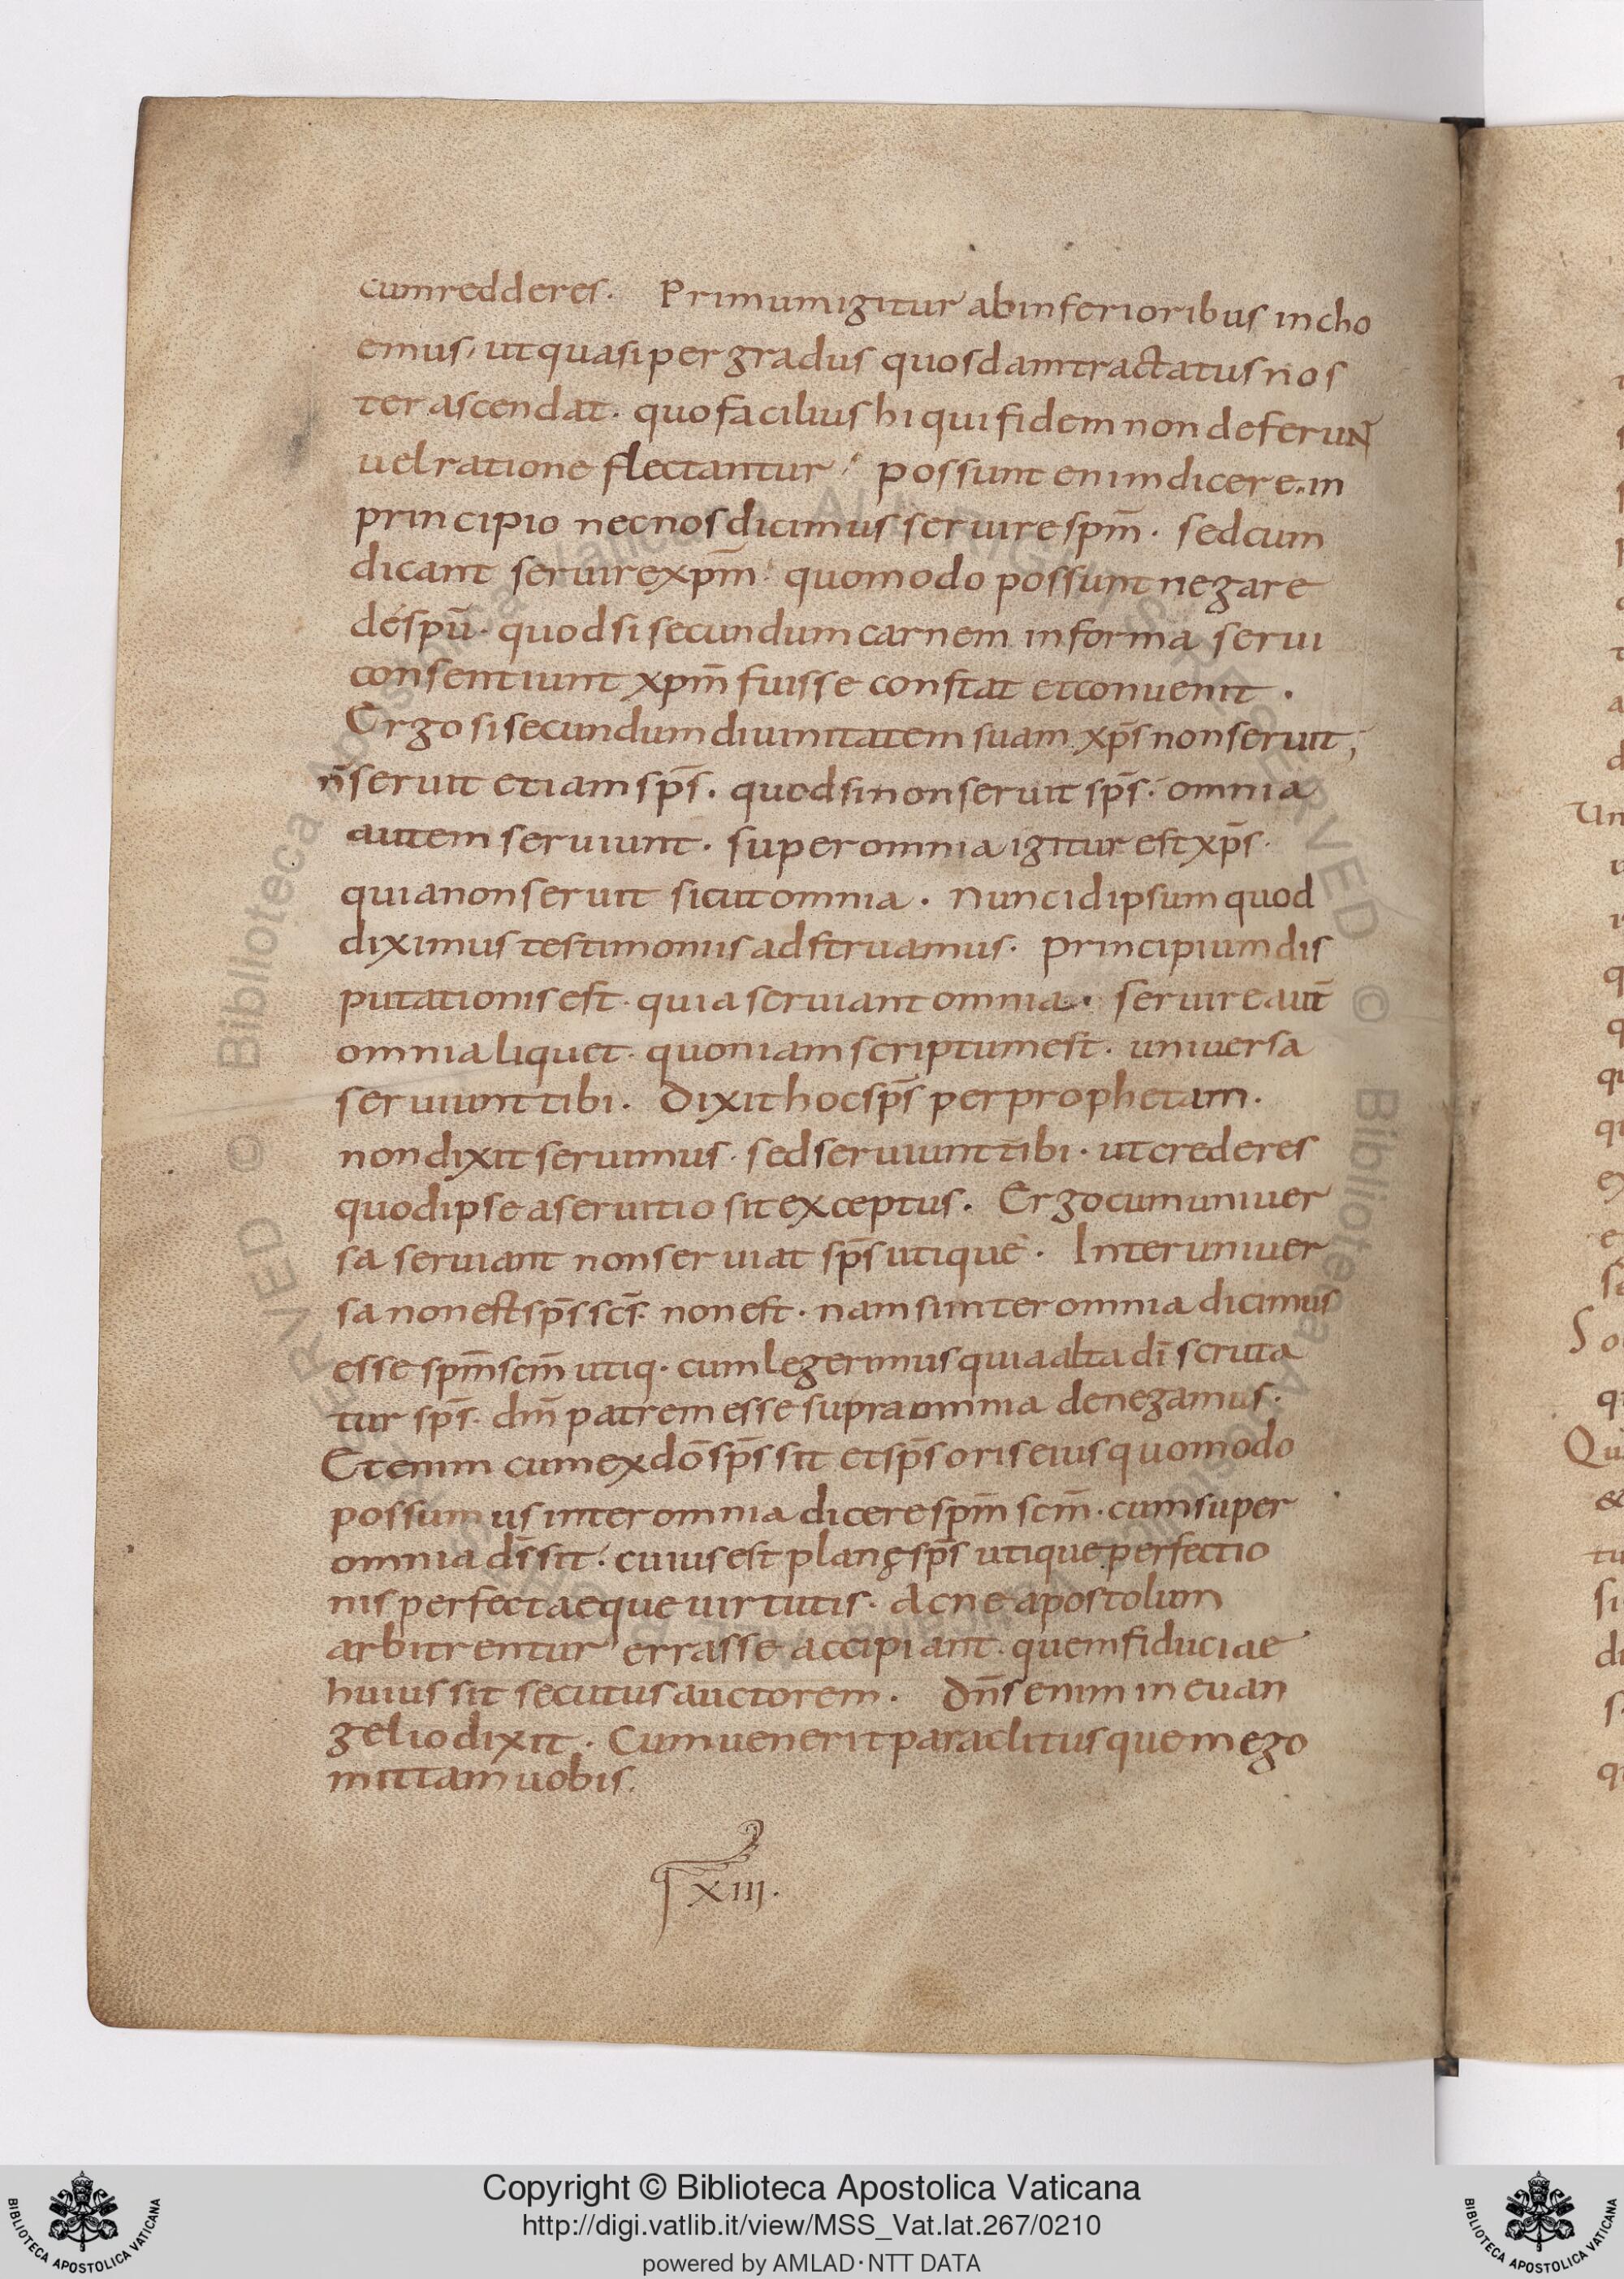 cum redderes. Primum igitur ab inferioribus incho
emus, ut quasi per gradus quosdam tractatus nos
ter ascendat. quo facilius hi qui fidem non deferuN̄
uel ratione flectantur. possunt enim dicere. in
principio nec nos dicimus seruire sp̄m. sed cum
dicant seruire xp̄m. quomodo possunt negare
de spū. quod si secundum carnem in forma serui
consentiunt xp̄m fuisse constat et conuenit.
Ergo si secundum diuinitatem suam xp̄s non seruit;
n̄ seruit etiam sp̄s. quod si non seruit sp̄s. omnia
autem seruiunt. super omnia igitur est xp̄s.
quia non seruit sicut omnia. Nunc id ipsum quod
diximus testimoniis adstruamus. Principium dis
putationis est. quia seruiant omnia. seruire aut̄
omnia liquet. quoniam scriptum est. uniuersa
seruiunt tibi. Dixit hoc sp̄s per prophetam.
non dixit seruimus. sed seruiunt tibi. ut crederes
quod ipse a seruitio sit exceptus. Ergo cum uniuer
sa seruiant non seruiat sp̄s utique. Inter uniuer
sa non est sp̄s sc̄s. non est. nam si inter omnia dicimus
esse sp̄m sc̄m utiq. cum legerimus quia alta dī scruta
tur sp̄s. dm̄ patrem esse supra omnia denegamus.
Etenim cum ex dō sp̄s sit et sp̄s oris eius quomodo
possumus inter omnia dicere sp̄m sc̄m. cum super
omnia ds̄ sit. cuius est planę sp̄s utique perfectio
nis perfectaeque uirtutis. Ac ne apostolum
arbitrentur errasse accipiant. quem fiduciae
huius sit secutus auctorem. Dn̄s enim in euan
gelio dixit. Cum uenerit paraclitus quem ego
mittam uobis.
q XIII.
Copyright © Biblioteca Apostolica Vaticana
http://digi.vatlib.it/view/MSS_Vat.lat.267/0210
powered by AMLAD·NTT DATA
BIBLIOTECA APOSTOLICA VATICANA
BIBLIOTECA APOSTOLICA VATICANA